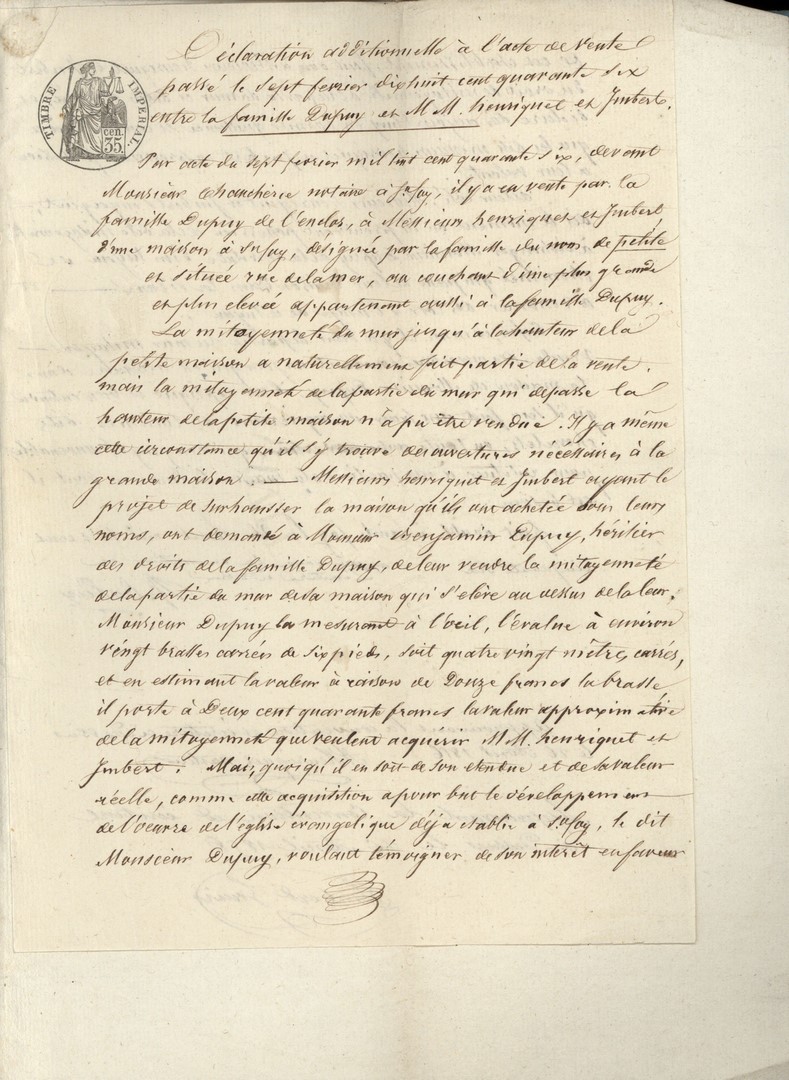 Déclaration additionnelle à l'acte de vente
passé le sept fevrier dixhuit cent quarante six
entre la famille Dupuy et M M. henriquet et Imbert.
TIMBRE IMPERIAL.
35 cen.
Par acte du sept fevrier mil huit cent quarante six, devant
Monsieur notaire à Ste foy, il y a eu vente par la
famille Dupuy de l'enclos, à Messieurs henriquet et Imbert,
d'une maison à Ste foy, désignée par la famille du nom de petite
et située rue de la mer, au couchant d'une plus grande
et plus elevée appartenant aussi à la famille Dupuy.
La mitoyenneté du mur jusqu'à la hauteur de la
petite maison a naturellement fait partie de la vente.
mais la mitoyenneté de la partie du mur qui depasse la
hauteur de la petite maison n'a pu être vendue. Il y a même
cette circonstance qu'il s'y trouve des ouvertures nécessaires à la
grande maison. — Messieurs henriquet et Imbert ayant le
projet de surhausser la maison qu'ils ont achetée sous leurs
noms, ont demandé à Monsieur Benjamin Dupuy, héritier
des droits de la famille Dupuy, de leur vendre la mitoyenneté
de la partie du mur de sa maison qui s'elève au dessus de la leur.
Monsieur Dupuy la mesurant à l'oeil, l'évalue à environ
vingt brasses carrées de six pieds, soit quatre vingt mètres carrés,
et en estimant la valeur à raison de Douze francs la brasse
il porte à Deux cent quarante francs la valeur approximative
de la mitoyenneté que veulent acquérir M M. henriquet et
Imbert. Mais, quoiqu'il en soit de son etendue et de sa valeur
réelle, comme cette acquisition a pour but le développement
de l'oeuvre de l'église évangelique déjà etablie à Ste foy, le dit
Monsieur Dupuy, voulant témoigner de son intérêt en faveur